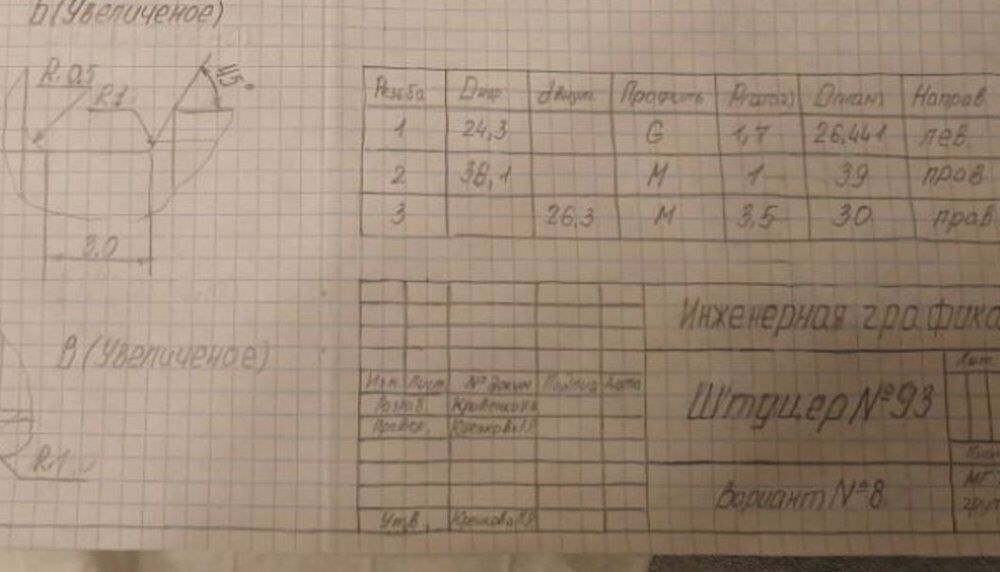 б (Увеличеное)
R. 0.5
R1
45°
3.0
в (Увеличеное)
R.1
Резьба Dнар dвнутр Профиль P(шаг) D(ном) Направ
1 24,3 G 1,7 26,441 лев.
2 38,1 М 1 39 прав
3 26,3 М 3,5 30 прав
Инженерная графика
Изм Лист № Докум Подпись Дата
Разраб.
Провер.
Штуцер № 93
Лит
Вариант № 8
Утв.